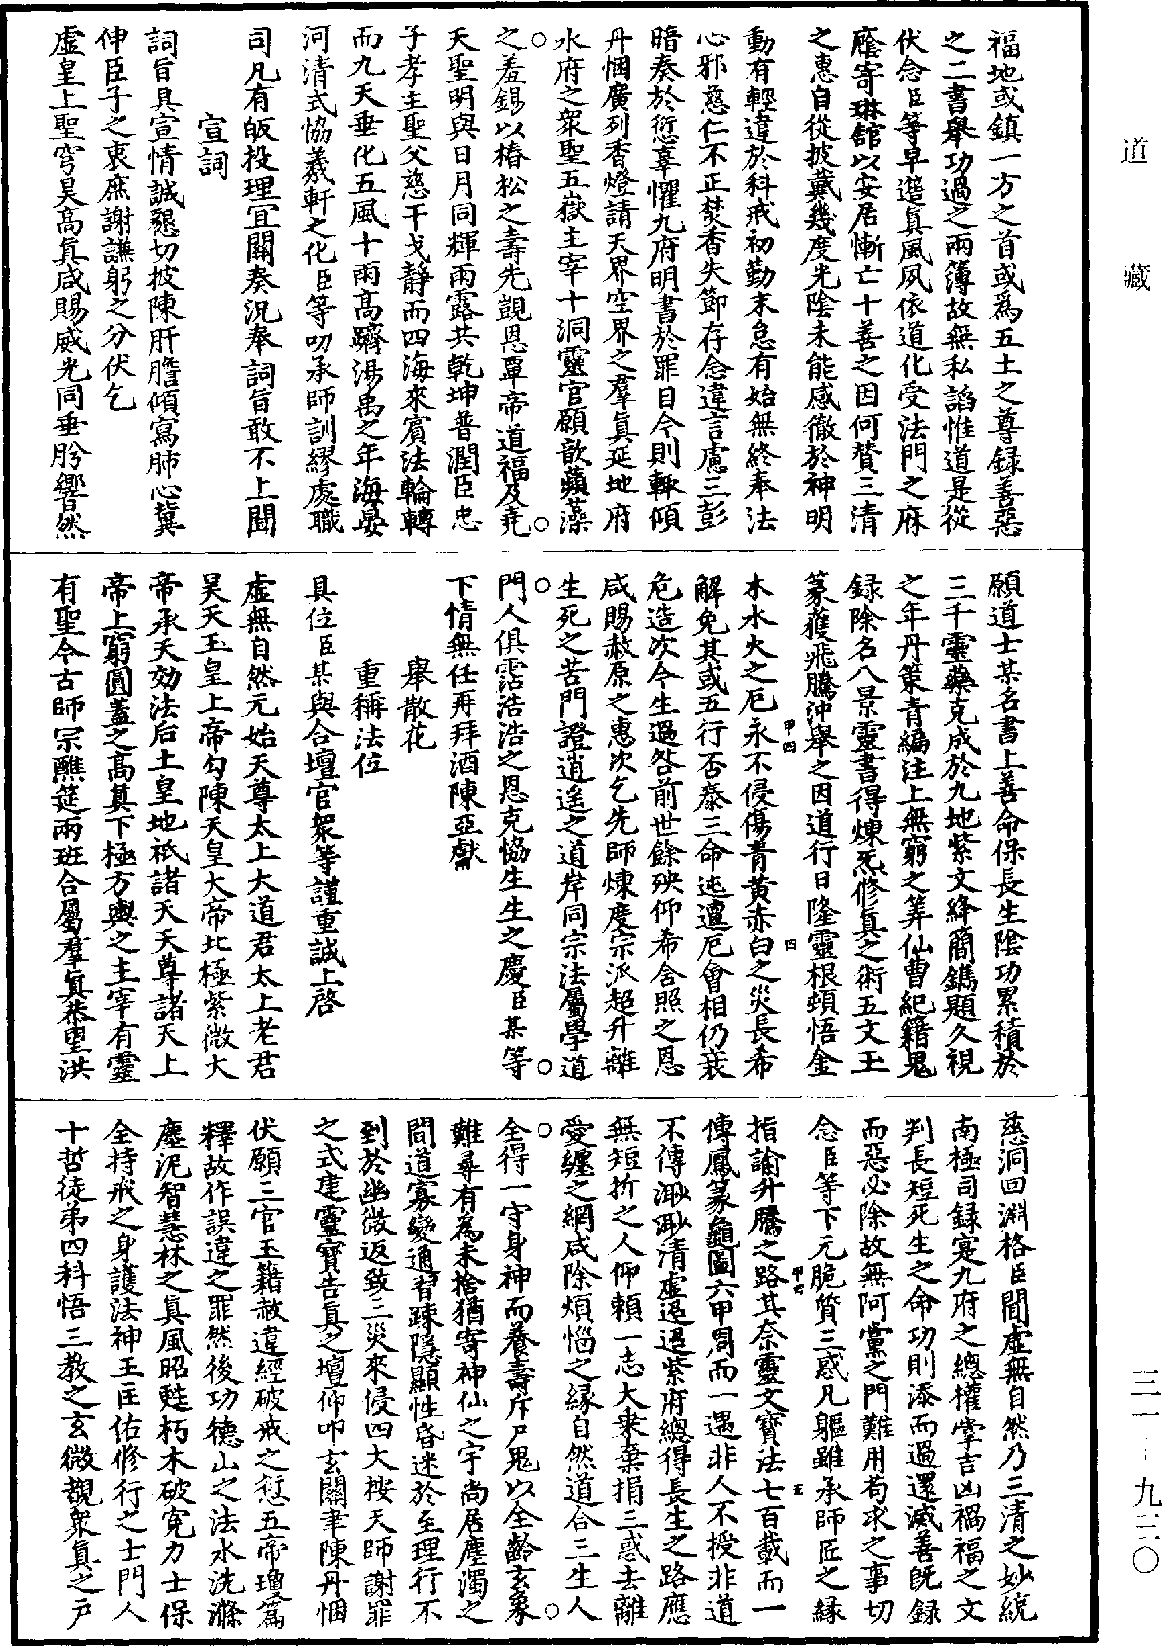 道藏
三一-九二〇
福地或鎮一方之首或爲五土之尊録善惡
之二書舉功過之兩簿故無私謟惟道是從
伏念臣等早選真風夙依道化受法門之庥
廕寄琳舘以安居慚亡十善之因何賛三清
之惠自從披戴幾度光陰未能感徹於神明
動有輕違於科戒初勤末怠有始無終奉法
心邪慈仁不正焚香失節存念違言慮三彭
暗奏於愆辜懼九府明書於罪目今則輙傾
丹悃廣列香燈請天界空界之羣真延地府
水府之衆聖五嶽主宰十洞靈官願歆蘋藻
之羞錫以椿松之壽先覬恩覃帝道福及堯
天聖明與日月同輝雨露共乾坤普潤臣忠
子孝主聖父慈干戈靜而四海來賓法輪轉
而九天垂化五風十雨高躋湯禹之年海晏
河清式恊羲軒之化臣等叨承師訓繆處職
司凡有皈投理宜關奏況奉詞旨敢不上聞
宣詞
詞旨具宣情誠懇切披陳肝膽傾寫肺心冀
伸臣子之衷庶謝譧躬之分伏乞
虛皇上聖穹昊高真咸賜威光同垂肸響然
願道士某名書上善命保長生陰功累積於
三千靈藥克成於九地紫文絳簡鐫題久視
之年丹策青編注上無窮之筭仙曹紀籍鬼
録除名八景靈書得煉炁修真之術五文玉
篆獲飛騰沖舉之因道行日隆靈根頓悟金
木水火之厄永不侵傷青黃赤白之災長希
解免其或五行否泰三命迍邅厄會相仍衰
危造次今生過咎前世餘殃仰希含照之恩
咸賜赦原之惠次乞先師煉度宗派超升離
生死之苦門證逍遙之道岸同宗法屬學道
門人俱霑浩浩之恩克協生生之慶臣某等
下情無任再拜酒陳亞獻
舉散花
重稱法位
具位臣某與合壇官衆等謹重誠上啓
虛無自然元始天尊太上大道君太上老君
昊天玉皇上帝勾陳天皇大帝北極紫微大
帝承天効法后土皇地祇諸天天尊諸天上
帝上窮圓蓋之高真下極方輿之主宰有靈
有聖今古師宗醮筵兩班合屬羣真恭望洪
慈洞回淵格臣聞虛無自然乃三清之妙統
南極司録寔九府之總權掌吉凶禍福之文
判長短死生之命功則添而過還減善旣録
而惡必除故無阿黨之門難用苟求之事切
念臣等下元脆質三惑凡軀雖承師匠之縁
指諭升騰之路其奈靈文寶法七百載而一
傳鳳篆龜圖六甲周而一遇非人不授非道
不傳渺渺清虛迢迢紫府總得長生之路應
無短折之人仰賴一志大乘棄捐三惑去離
愛纏之網咸除煩惱之縁自然道合三生人
全得一守身神而養壽斥尸鬼以全齡玄象
難尋有爲未捨猶寄神仙之宇尚居塵濁之
間道寡變通智踈隱顯性昏迷於至理行不
到於幽微返致三災來侵四大按天師謝罪
之式建靈寶告真之壇仰叩玄關聿陳丹悃
伏願三官玉籍赦違經破戒之愆五帝瓊篇
釋故作誤違之罪然後功德山之法水洗滌
塵泥智慧林之真風昭甦朽木破寃力士保
全持戒之身護法神王匡佑修行之士門人
十哲徒弟四科悟三教之玄微覩衆真之戸
甲四
四
甲七
五